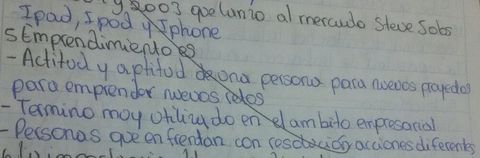 y 2003 que lanzo al mercado Steve Jobs
Ipad, Ipod y Iphone
5 Emprendimiento es
- Actitud y aptitud de una persona para nuevos proyectos
para emprender nuevos retos
- Termino muy utilizado en el ambito empresarial
- Personas que enfrentan con resolución acciones diferentes